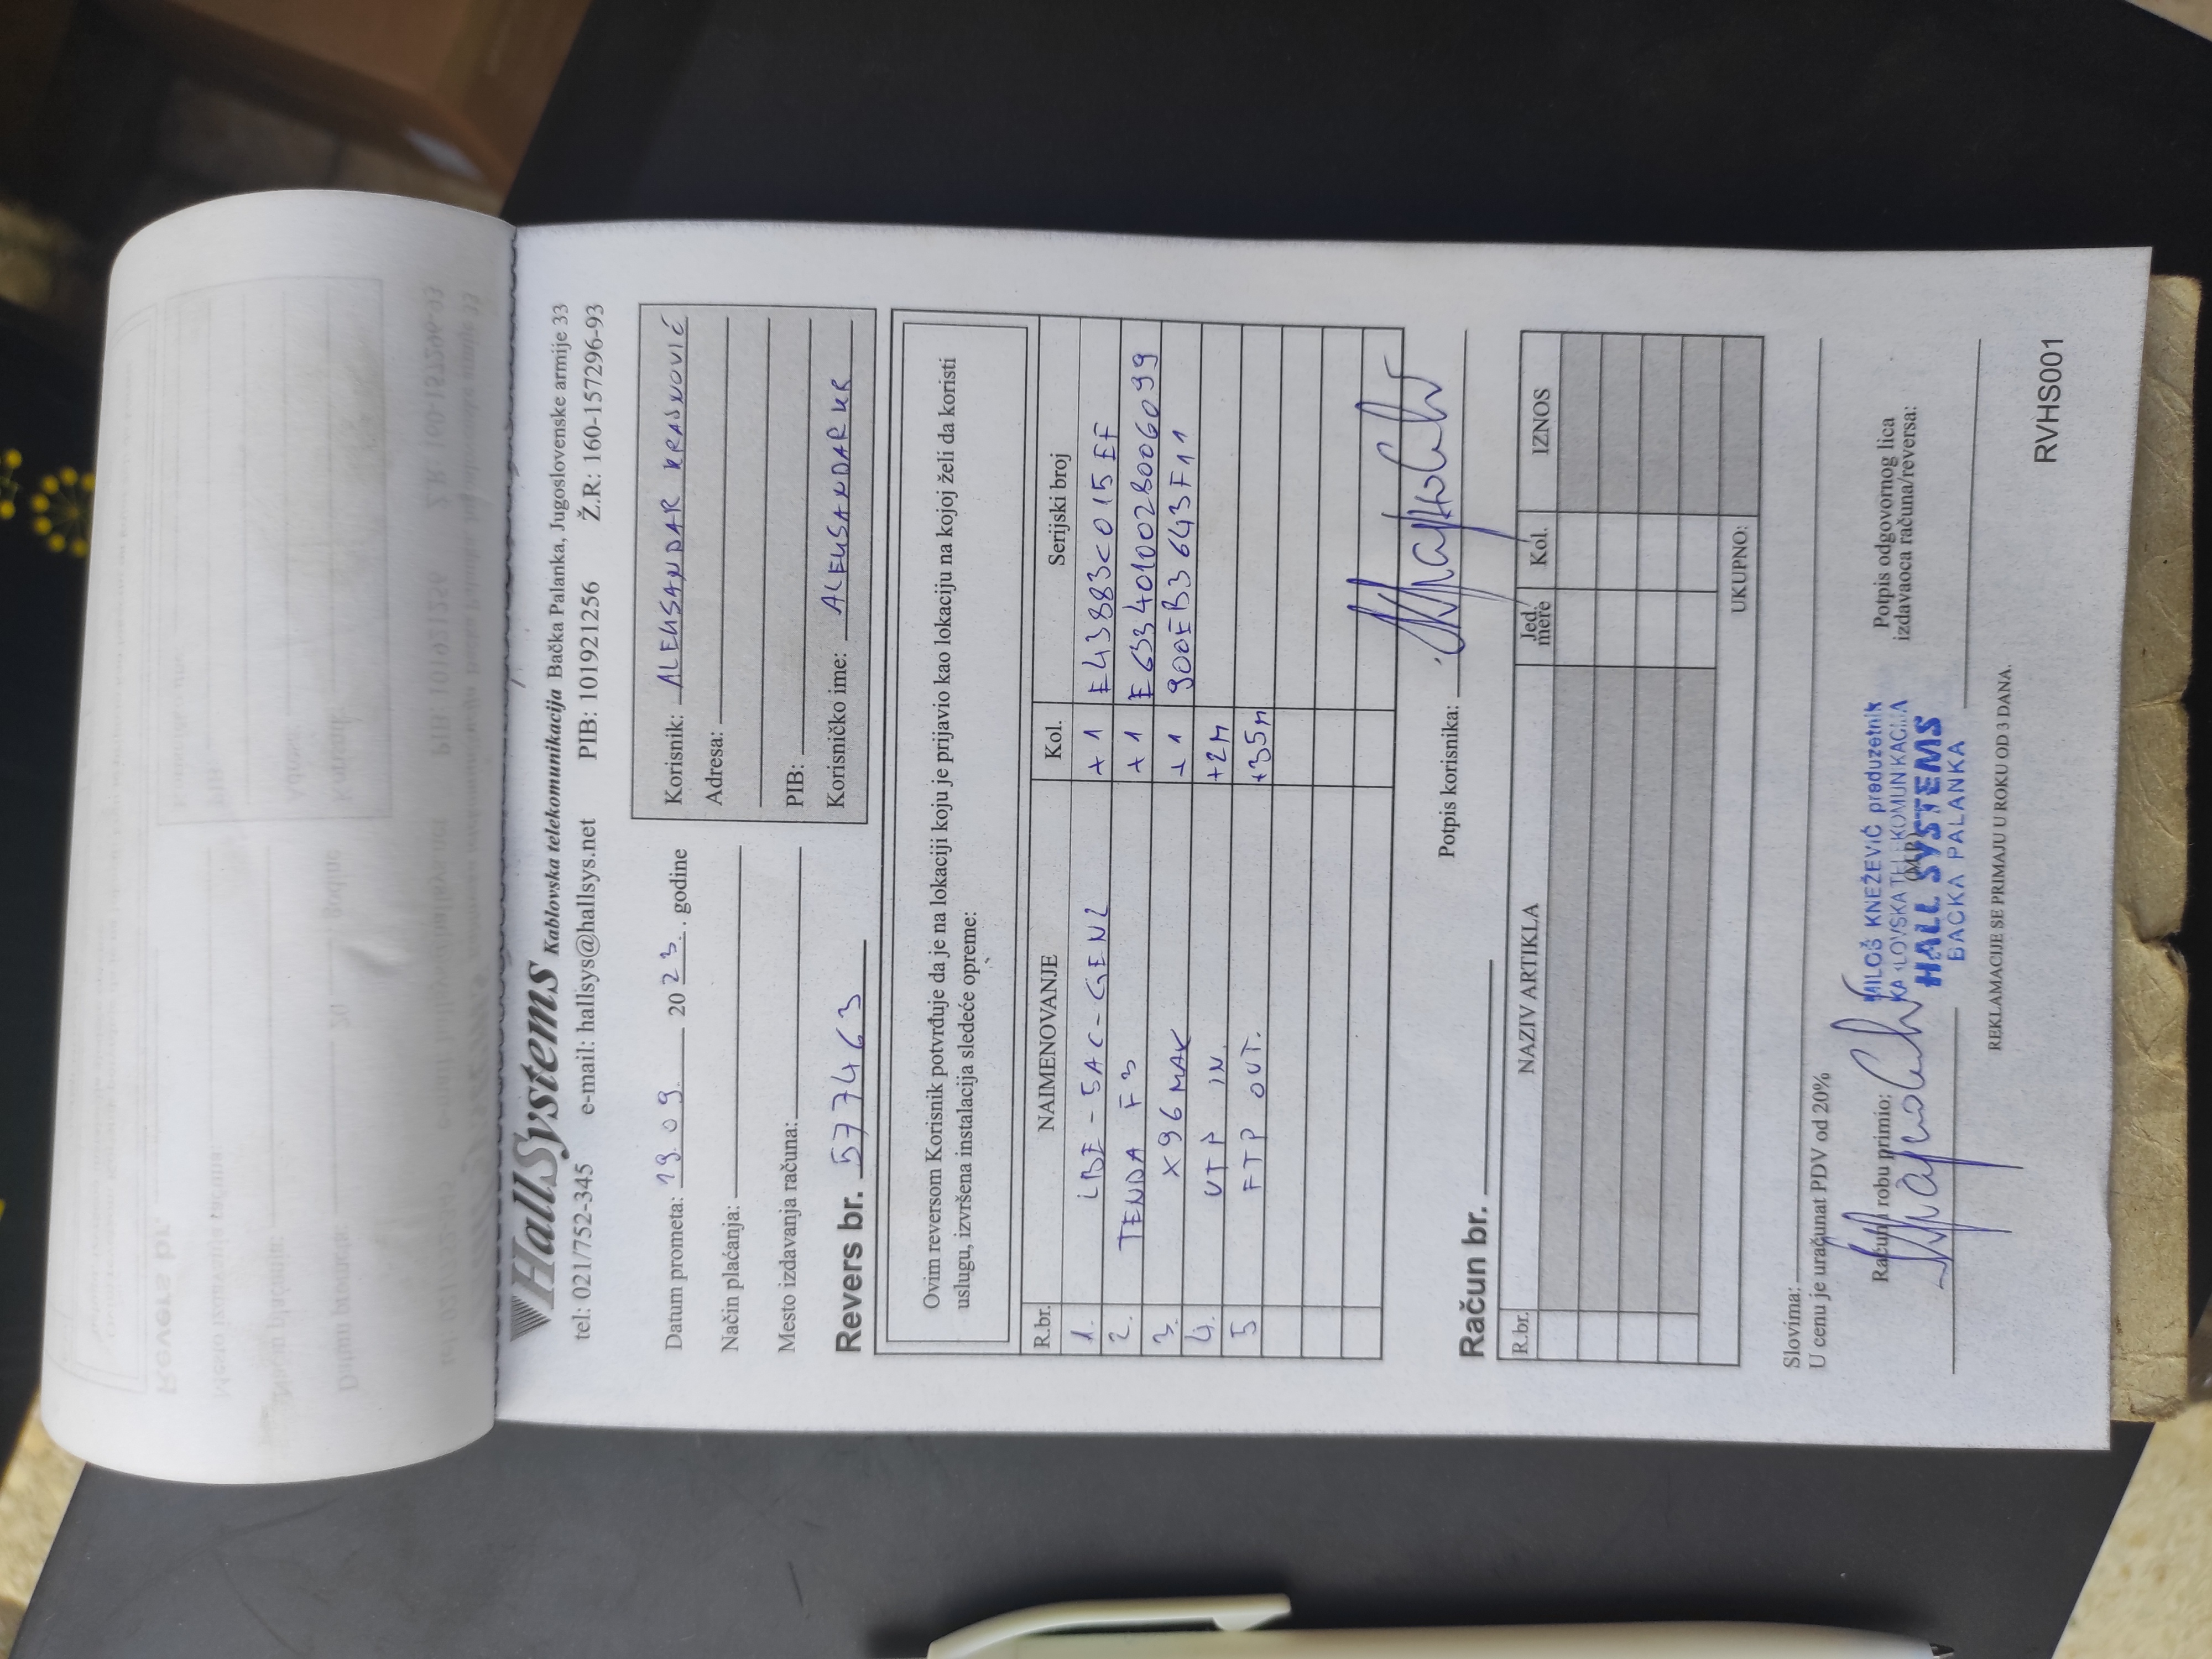 HallSystems Kablovska telekomunikacija Bačka Palanka, Jugoslovenske armije 33
tel: 021/752-345 e-mail: hallsys@hallsys.net PIB: 101921256 Ž.R: 160-157296-93
Datum prometa: 19.09. 2023. godine
Način plaćanja:
Mesto izdavanja računa:
Revers br. 577463
Korisnik: ALEKSANDAR KRAJNOVIĆ
Adresa:
PIB:
Korisničko ime: ALEKSANDARKR
Ovim reversom Korisnik potvrđuje da je na lokaciji koju je prijavio kao lokaciju na kojoj želi da koristi
uslugu, izvršena instalacija sledeće opreme:
R.br. NAIMENOVANJE Kol. Serijski broj
1. LBE-5AC-GEN2 +1 E43883C015EF
2. TENDA F3 +1 E6334010028006099
3. X96 MAX +1 900EB3643F11
4. UTP IN. +2M
5 FTP OUT. +35M
Potpis korisnika:
Račun br.
R.br. NAZIV ARTIKLA Jed. mere Kol. IZNOS
UKUPNO:
Slovima:
U cenu je uračunat PDV od 20%
Račun i robu primio:
MILOŠ KNEŽEVIĆ preduzetnik
KABLOVSKA TELEKOMUNIKACIJA
HALL SYSTEMS
BAČKA PALANKA
(M.P.)
Potpis odgovornog lica
izdavaoca računa/reversa:
REKLAMACIJE SE PRIMAJU U ROKU OD 3 DANA.
RVHS001